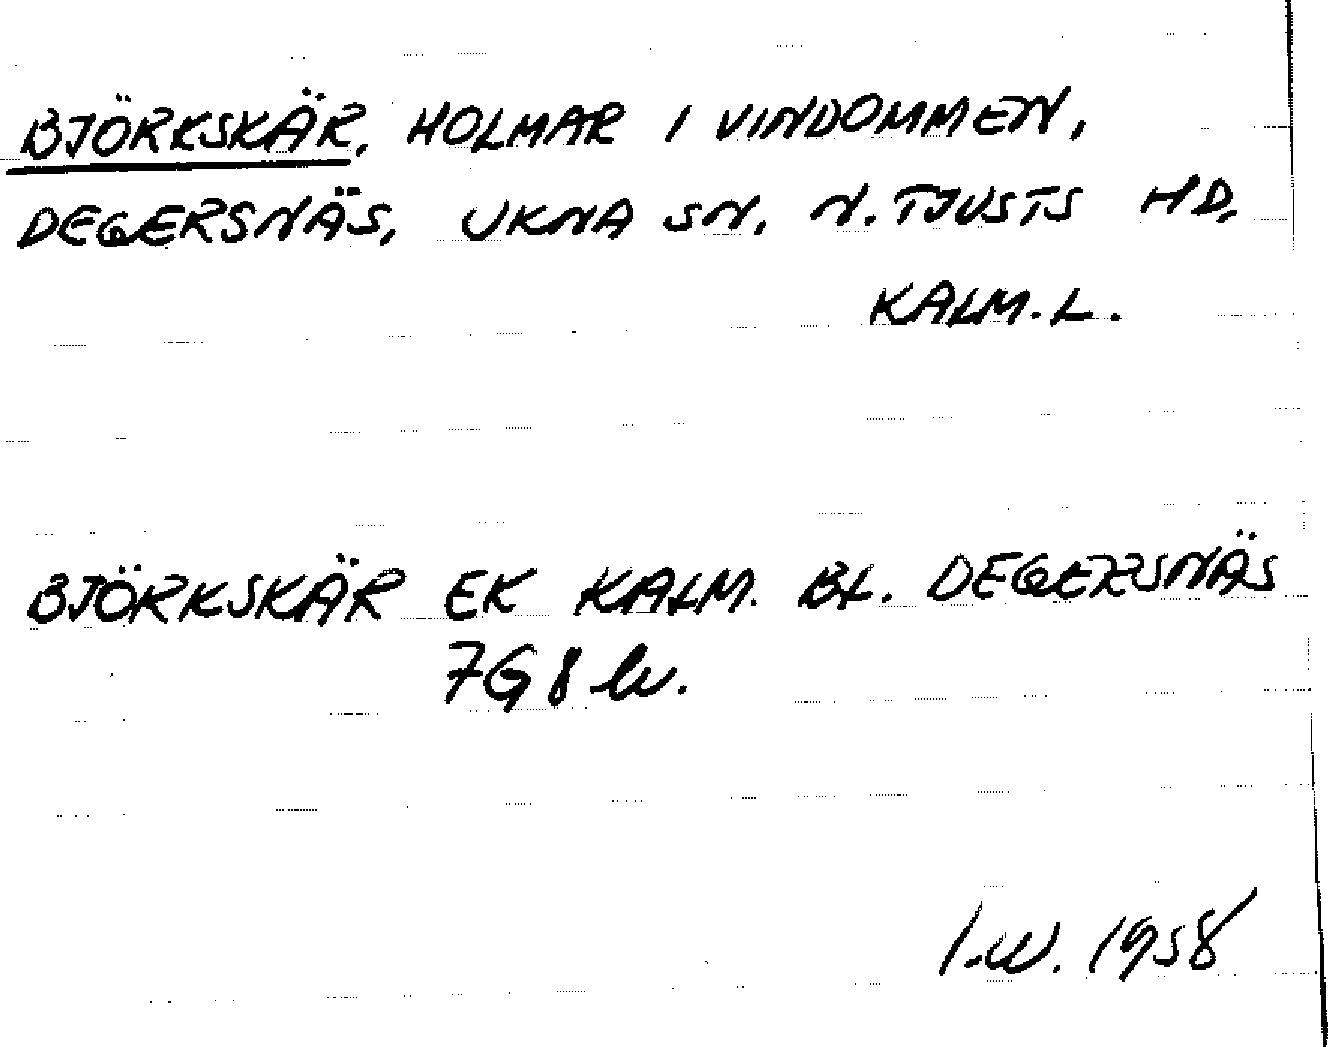 BJÖRKSKÄR, HOLMAR I VINDOMMEN,
DEGERSNÄS, UKNA SN, N. TJUSTS HD,
KALM. L.
BJÖRKSKÄR EK KALM. BL. DEGERSNÄS
7G8
I.W. 1958